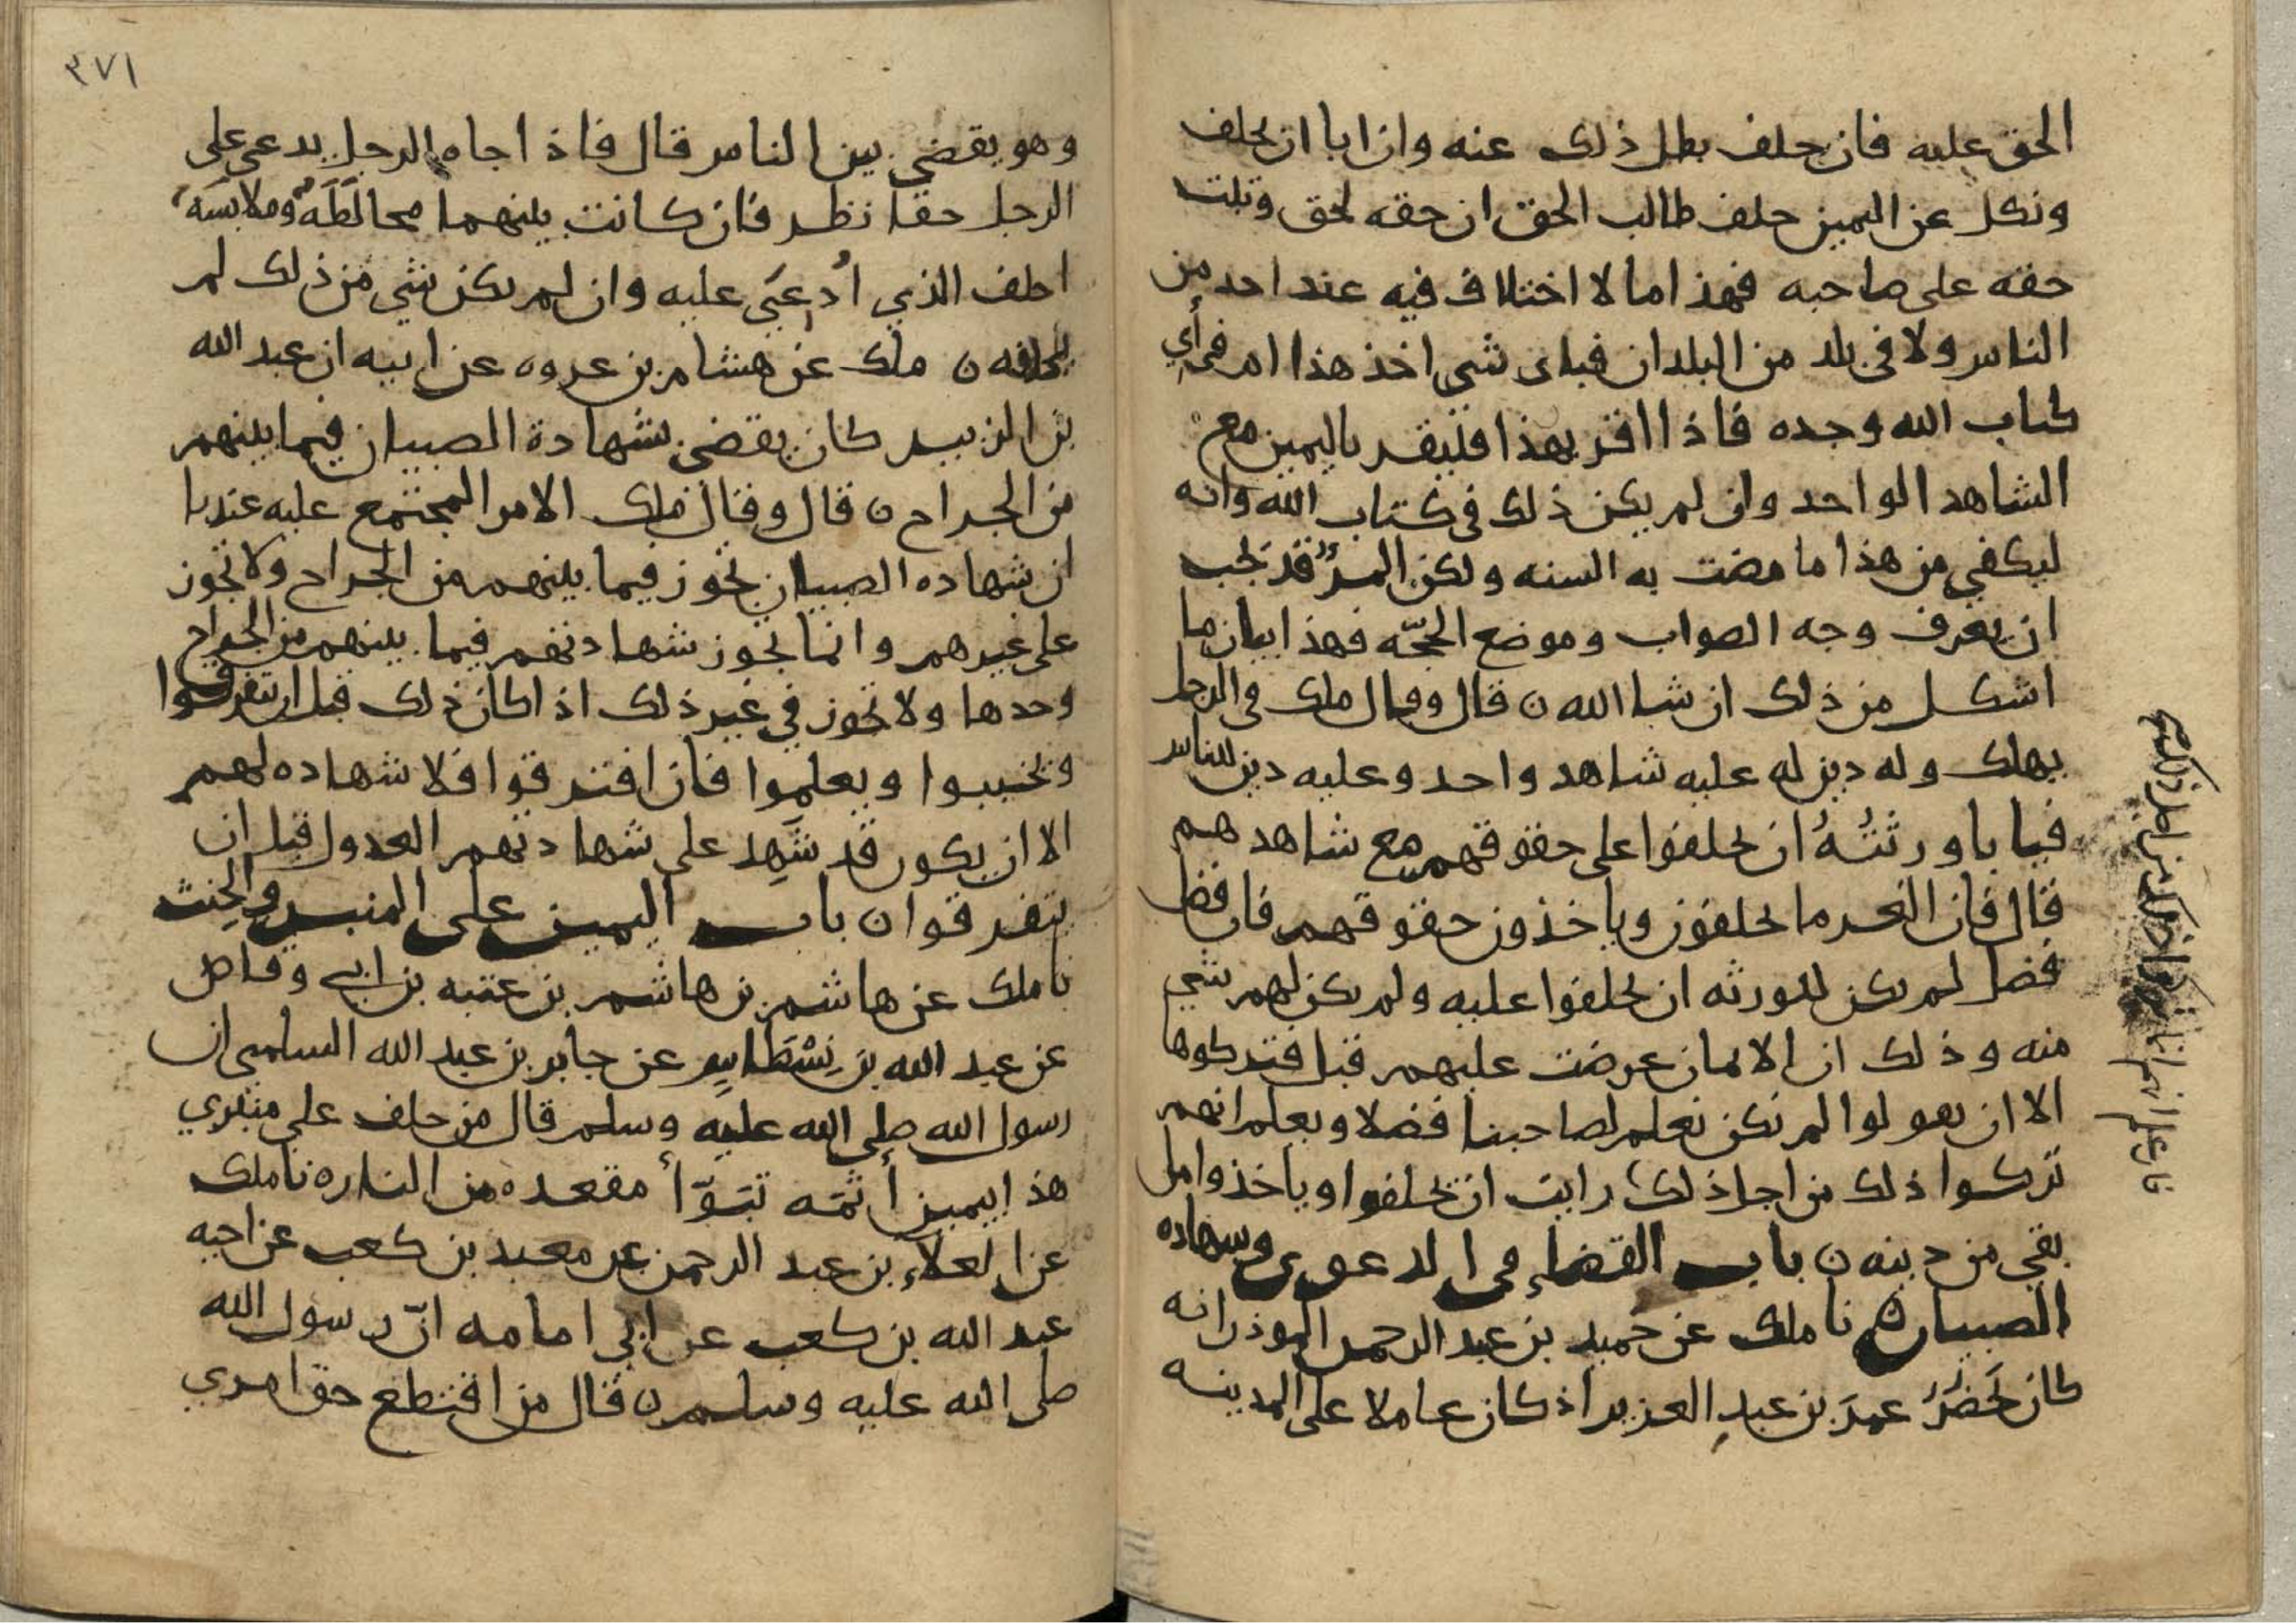 الحق عليه فان حلف بطل ذلك عنه وان ابا ان يحلف
ونكل عن اليمين حلف طالب الحق ان حقه لحق وثبت
حقه على صاحبه فهذا مالا اختلاف فيه عند احد من
الناس ولا في بلد من البلدان فباى شي اخذ هذا ام في أي
كتاب الله وجده فاذا اقر بهذا فليقر باليمين مع
الشاهد الواحد وان لم يكن ذلك في كتاب الله وانه
ليكفي من هذا ما مضت به السنه ولكن المرؤ قد يحب
ان يعرف وجه الصواب وموضع الحجّه فهذا بيان ما
اشكل من ذلك ان شا الله ن قال وقال ملك في الرجل
يهلك وله دين له عليه شاهد واحد وعليه دين للناس
فيابا ورثتُهُ ان يحلفوا على حقوقهم مع شاهدهم
قال فان الغرما يحلفون وياخذون حقوقهم فان فضل
فضل لم يكن للورثه ان يحلفوا عليه ولم يكن لهم شي
منه وذلك ان الايمان عرضت عليهم قبل فتركوها
الا ان يقولوا لم نكن نعلم لصاحبنا فضلا ويعلم انهم
تركوا ذلك من اجل ذلك رايت ان يحلفوا وياخذوا ما
بقي من دينه ن باب القضاء في الدعوى وشهاده
الصبيان ن نا ملك عن حُميد بن عبد الرحمن الموذن انه
كان يَحضُرُ عمرَ بن عبدِ العزيز اذ كان عاملا على المدينه
٣٧١
وهو يقضي بين الناس قال فاذا جاه الرجل يدعي على
الرجل حقا نظر فان كانت بينهما مخالَطَةٌ وملابسَه
احلف الذي ادُعِيَ عليه وان لم يكن شي من ذلك لم
يحلفه ن ملك عن هشام بن عروه عن ابيه ان عبد الله
بن الزبير كان يقضي بشهادة الصبيان فيما بينهم
من الجراح ن قال وقال ملك الامر المجتمع عليه عندنا
ان شهاده الصبيان تجوز فيما بينهم من الجراح ولا تجوز
على غيرهم وانما تجوز شهادتهم فيما بينهم من الجراح
وحدها ولا تجوز في غير ذلك اذا كان ذلك قبل ان يتفرقوا
ويخببوا ويعلموا فان افترقوا فلا شهاده لهم
الا ان يكون قد شَهِد على شهادتهم العدول قبل ان
يتفرقوا ن باب اليمين على المنبر والحِنث
نا ملك عن هاشم بن هاشم بن عتبه بن ابي وقاص
عن عبد الله بن نِسْطَاسٍ عن جابر بن عبد الله السلمي ان
رسول الله صلى الله عليه وسلم قال من حلف على منبري
هذا بيمين أثمَه تبَوّأ مقعده من النار ه نا ملك
عن العلاءِ بن عبد الرحمن عن معبد بن كعب عن اخيه
عبد الله بن كعب عن ابي امامه انّ رسول الله
صلى الله عليه وسلم ن قال من اقتطع حق امري